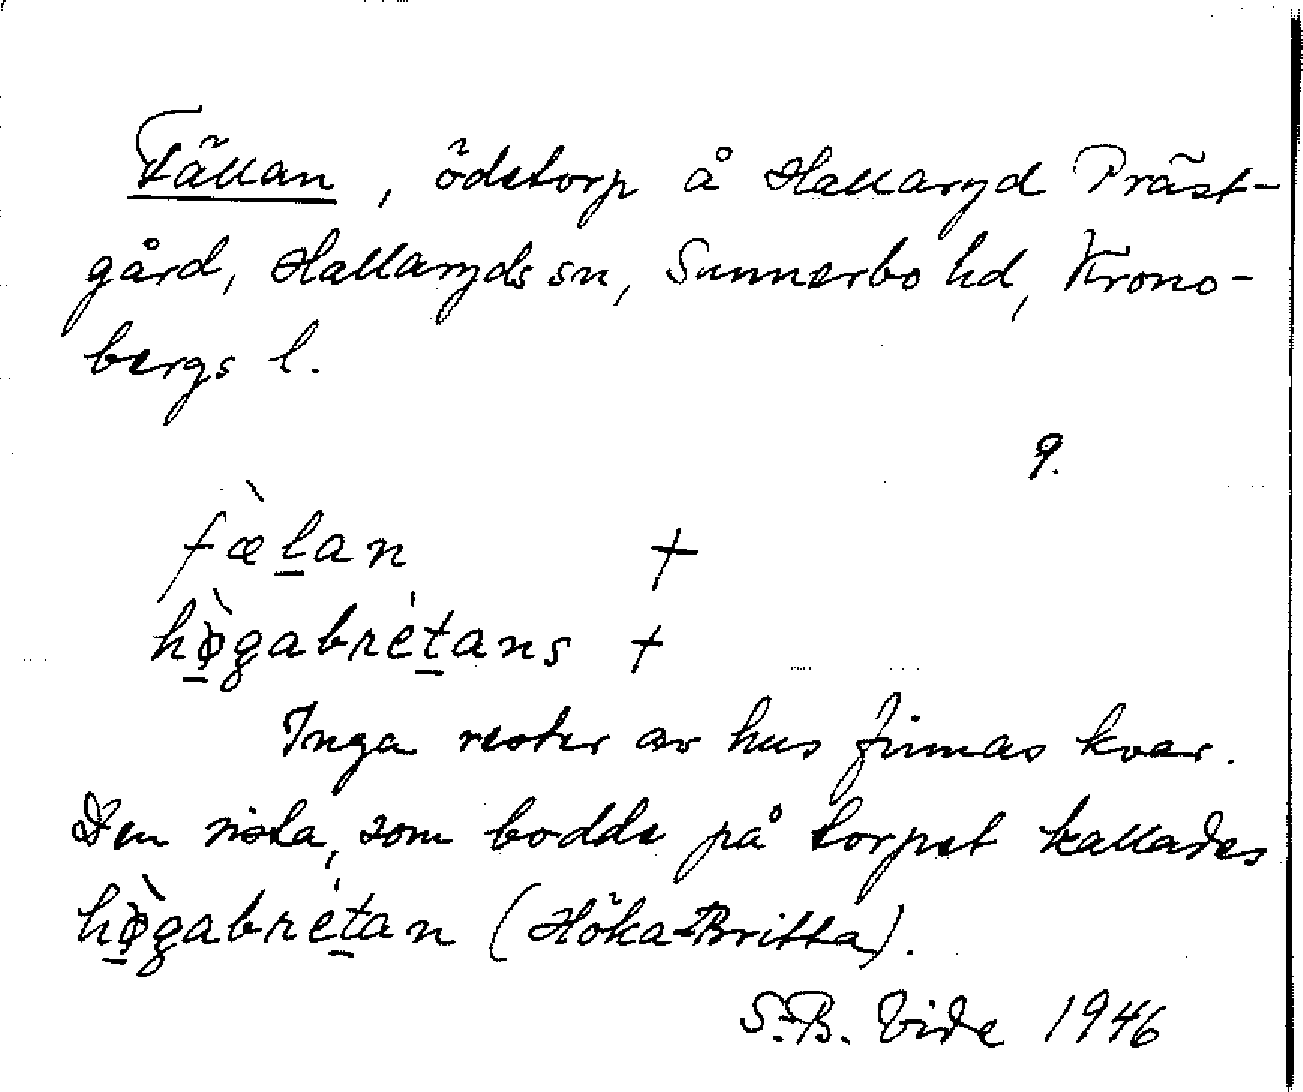 Fällan, ödetorp å Hallaryd Präst-
gård, Hallaryds sn, Sunnerbo hd, Krono-
bergs l.
9.
fæ̀l̲an +
hø̲̀gabrét̲ans +
Inga rester av hus finnas kvar.
Den sista, som bodde på torpet kallades
hø̲̀gabrét̲an (Höka-Britta).
S.B. Vide 1946